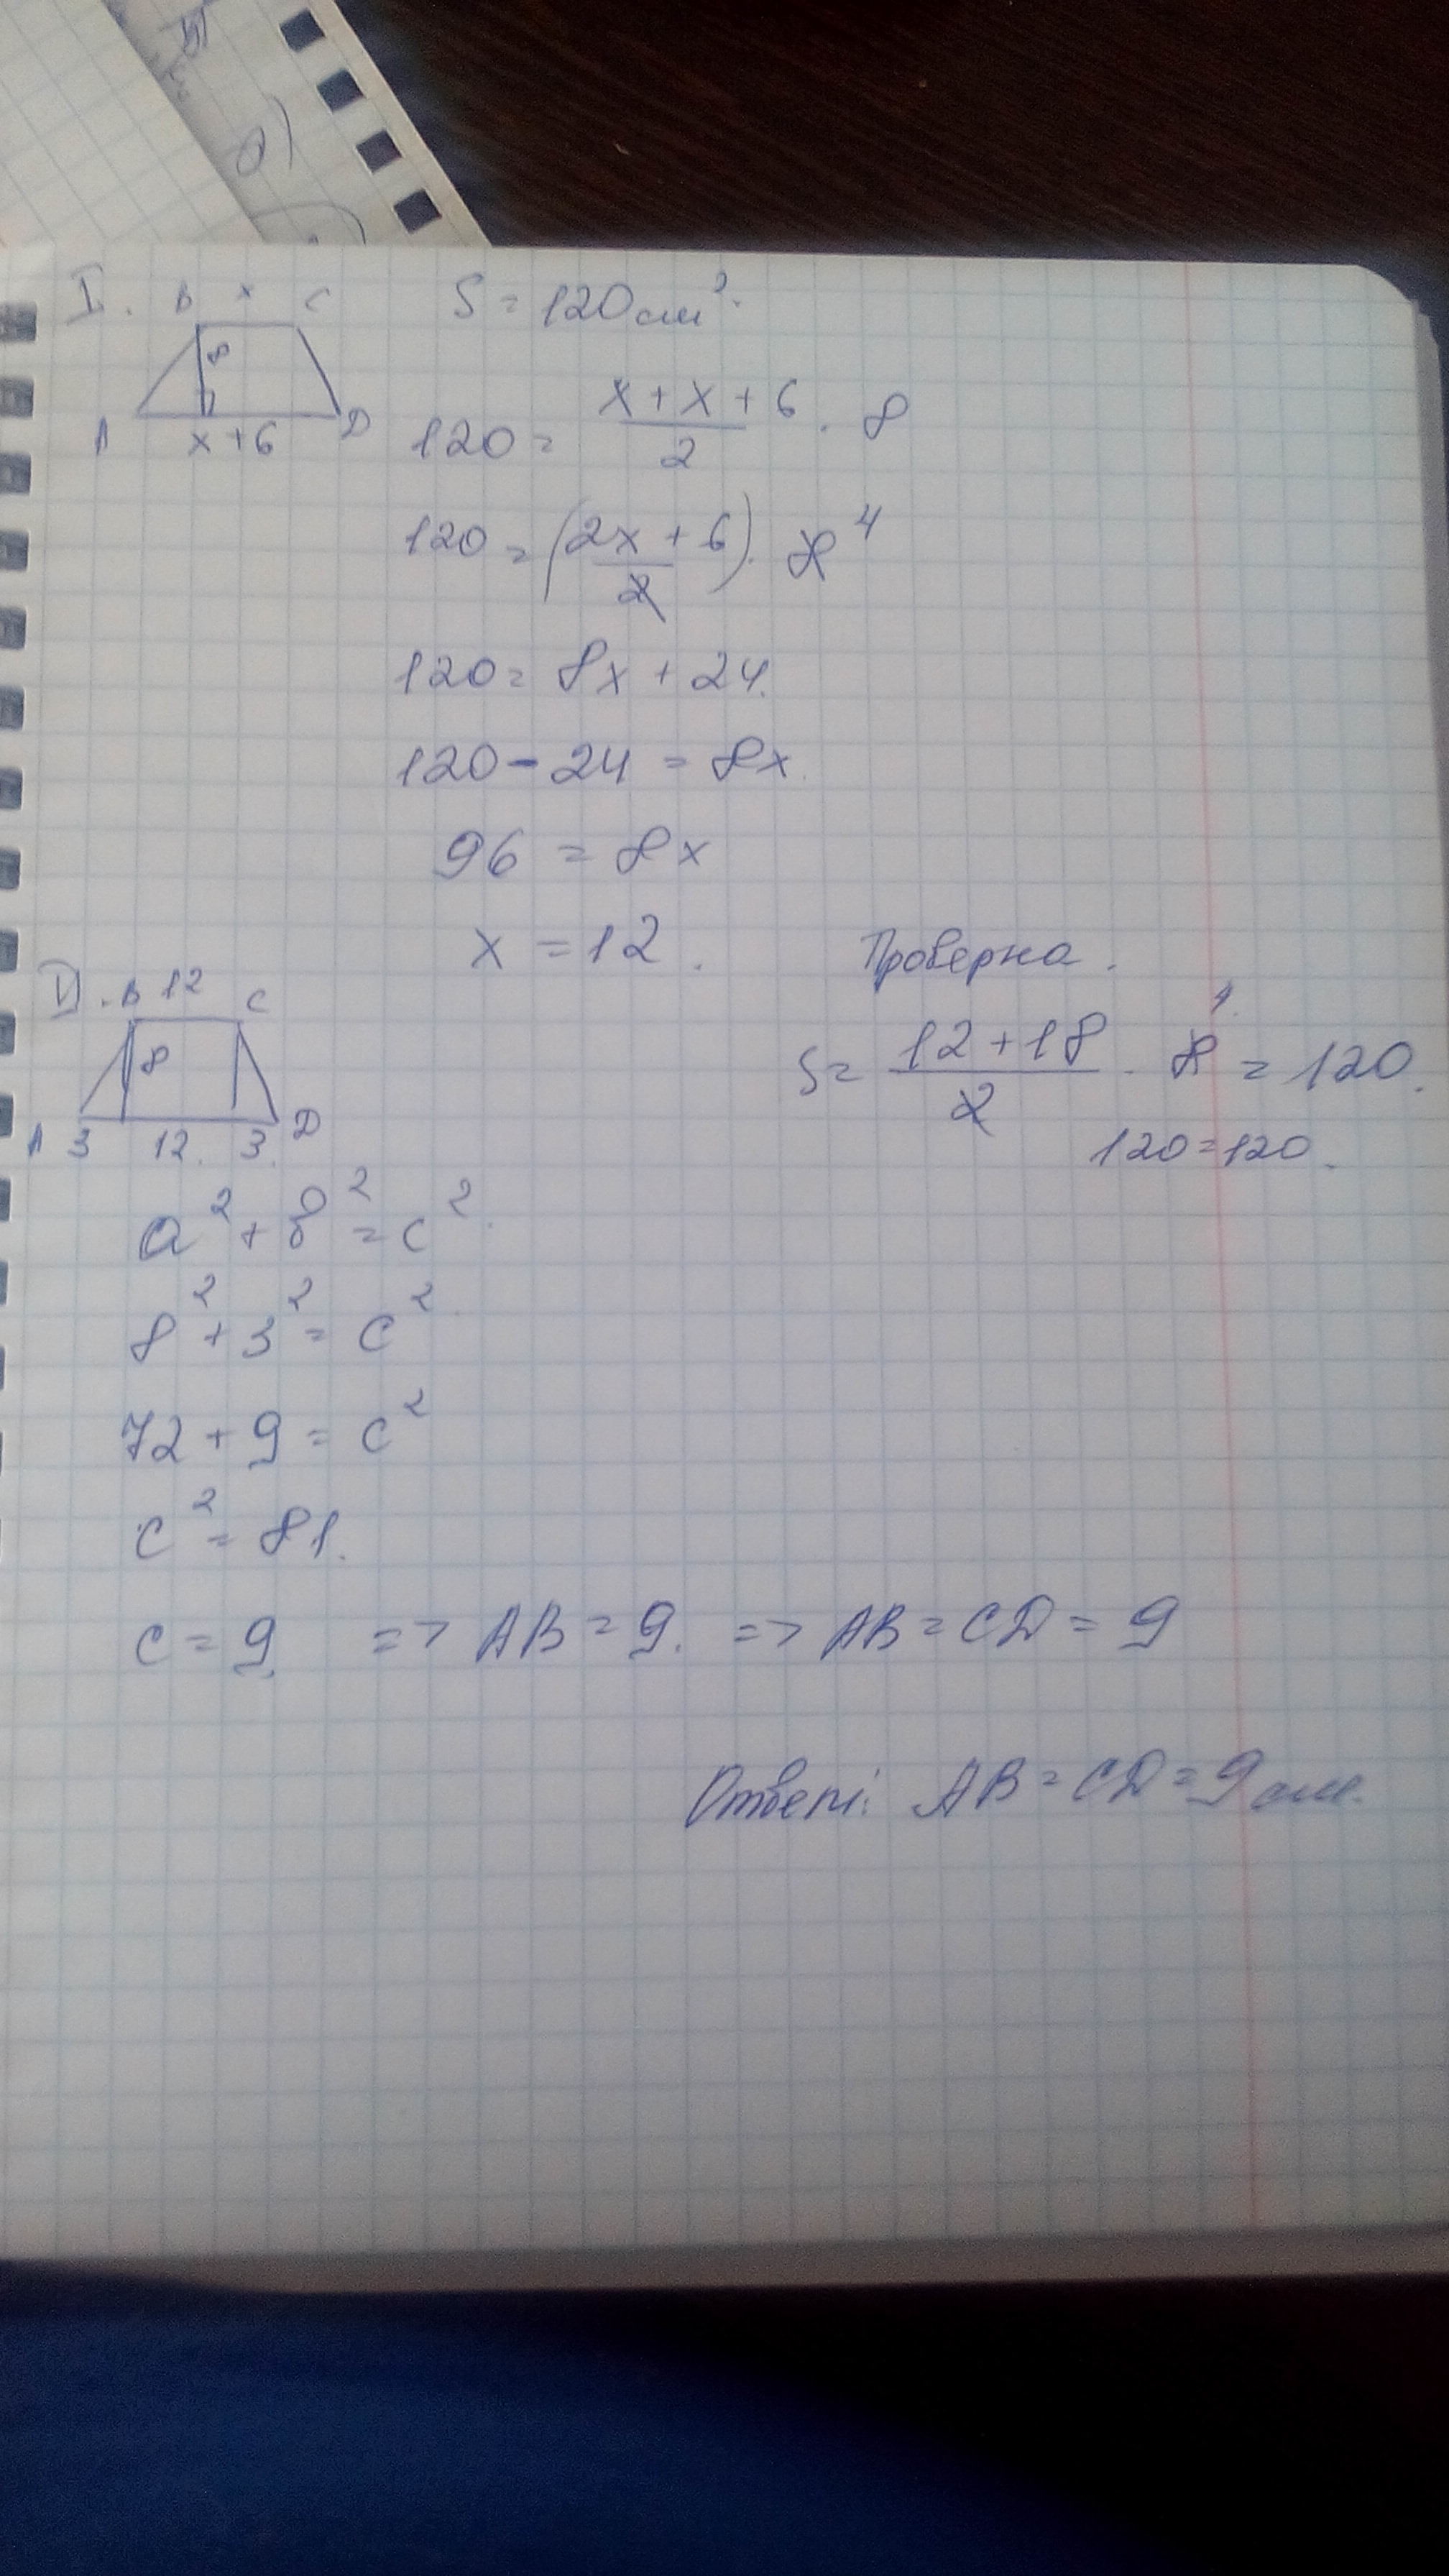 I. B x C S = 120 см².
8
A x + 6 D
120 = x + x + 6 / 2 · 8
120 = (2x + 6 / 2) · 8 4
120 = 8x + 24.
120 - 24 = 8x.
96 = 8x
x = 12.
Проверка.
S = 12 + 18 / 2 · 8 4 = 120.
120 = 120.
II. B 12 C
8
A 3 12. 3. D
a² + b² = c².
8² + 3² = c²
72 + 9 = c²
c² = 81.
c = 9 => AB = 9. => AB = CD = 9
Ответ: AB = CD = 9 см.